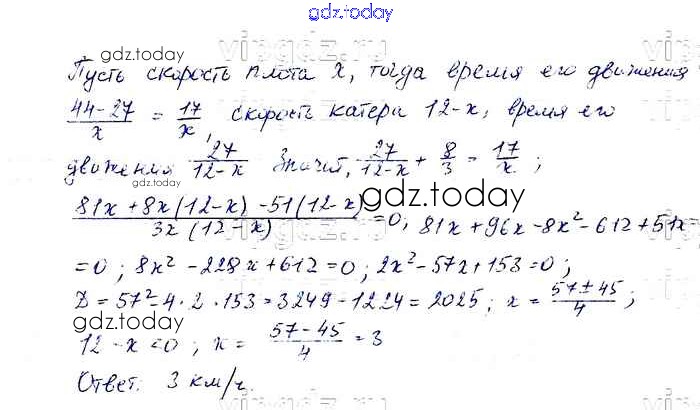 gdz.today
Пусть скорость плота x, тогда время его движения
gdz.today
(44-27)/x = 17/x, скорость катера 12-x, время его
движения 27/(12-x) Значит, 27/(12-x) + 8/3 = 17/x ;
gdz.today
gdz.today
(81x + 8x(12-x) - 51(12-x))/(3x(12-x)) = 0, 81x + 96x - 8x² - 612 + 51x =
= 0 ; 8x² - 228x + 612 = 0 ; 2x² - 57x + 153 = 0 ;
Д = 57² - 4 · 2 · 153 = 3249 - 1224 = 2025 ; x = (57 ± 45)/4 ;
gdz.today
12 - x ≠ 0 ; x = (57 - 45)/4 = 3
Ответ: 3 км/ч.